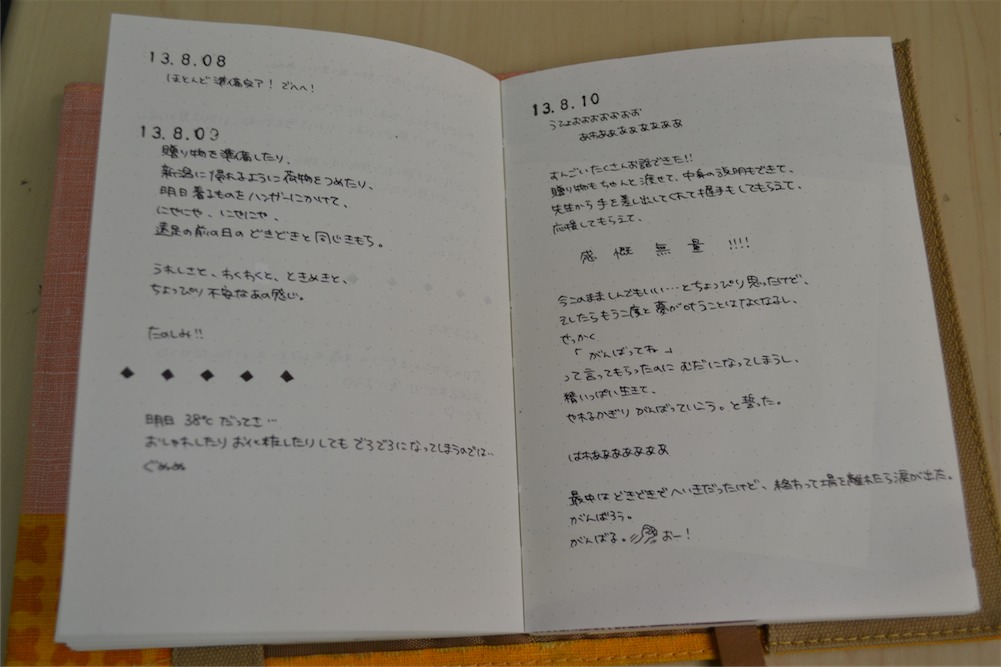 13.8.08
ほとんど準備完了！でへへ！
13.8.09
贈り物を準備したり、
新潟に帰れるように荷物をつめたり、
明日着るものをハンガーにかけて、
にやにや、にやにや、
遠足の前の日のどきどきと同じきもち。
うれしさと、わくわくと、ときめきと、
ちょっぴり不安なあの感じ。
たのしみ!!
◆ ◆ ◆ ◆ ◆
明日38℃だってさ…
おしゃれしたりお化粧したりしてもどろどろになってしまうのでは…
ぐぬぬ
13.8.10
うひょおおおおおおお
あれああああああああ
すんごいたくさんお話できた!!
贈り物もちゃんと渡せて、中身の説明もできて、
先生から手を差し出してくれて握手もしてもらえて、
応援してもらえて、
感慨無量!!!!
今このまましんでもいい…とちょっぴり思ったけど、
そしたらもう二度と夢が叶うことはなくなるし、
せっかく
「がんばってね」
って言ってもらったのにむだになってしまうし、
精いっぱい生きて、
やれるかぎりがんばっていこう。と誓った。
はれあああああああ
最中はどきどきでへいきだったけど、終わって場を離れたら涙が出た。
がんばろう。
がんばる。おー！